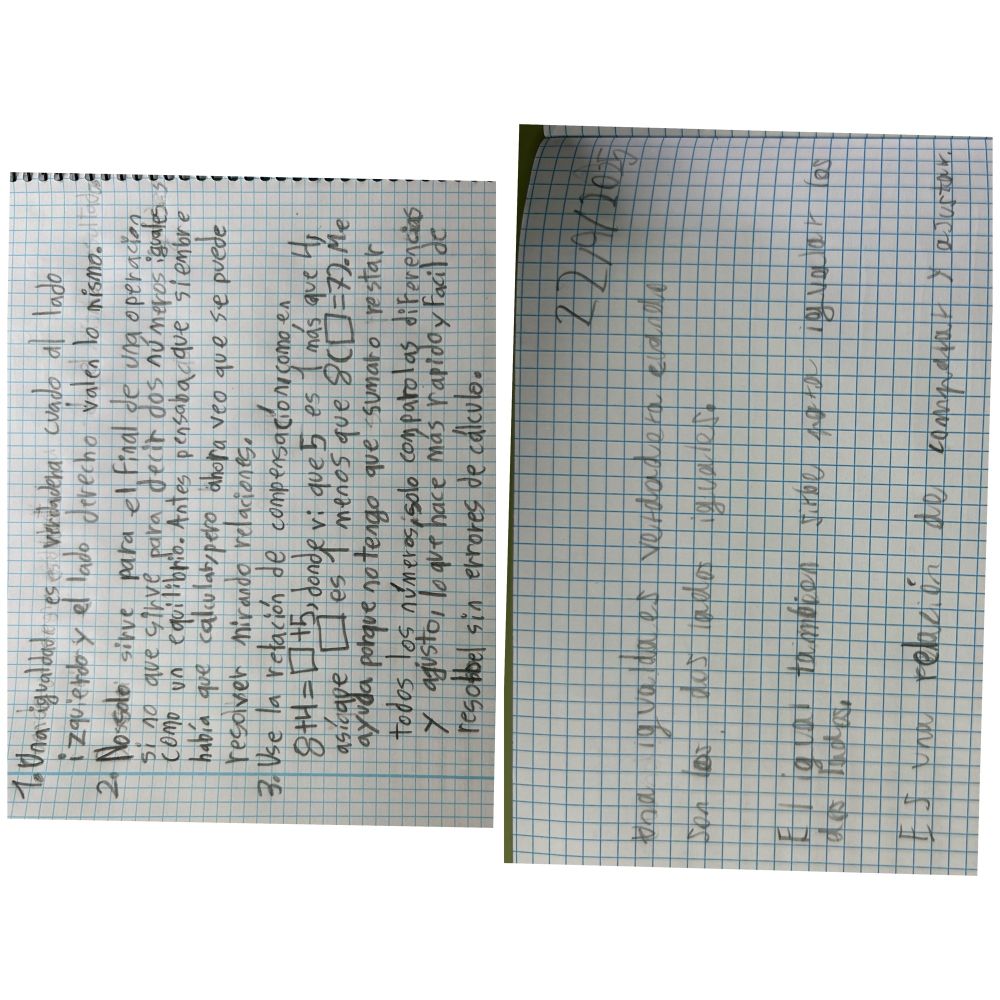 1. Una igualdad es verdadera cuado al lado
izquierdo y el lado derecho valen lo mismo.
2. No solo sirve para el final de una operación
si no que sirve para decir dos números iguales
como un equilibrio. Antes pensaba que siembre
había que calcular, pero ahora veo que se puede
resolver mirando relaciones.
3. Use la relación de compensación (como en
8+4=□+5, donde vi que 5 es 1 más que 4,
asíque □ es 1 menos que 8 (□=7). Me
ayuda porque no tengo que sumar o restar
todos los números, solo comparo las diferencias
y agusto, lo que hace más rapido y facil de
resolbel sin errores de cálculo.
22/9/2025
una igualda es verdadera cuando
son los dos lados iguales.
El igual tambien sirbe para igualar los
dos lados.
Es una relación de compadar y ajustar.